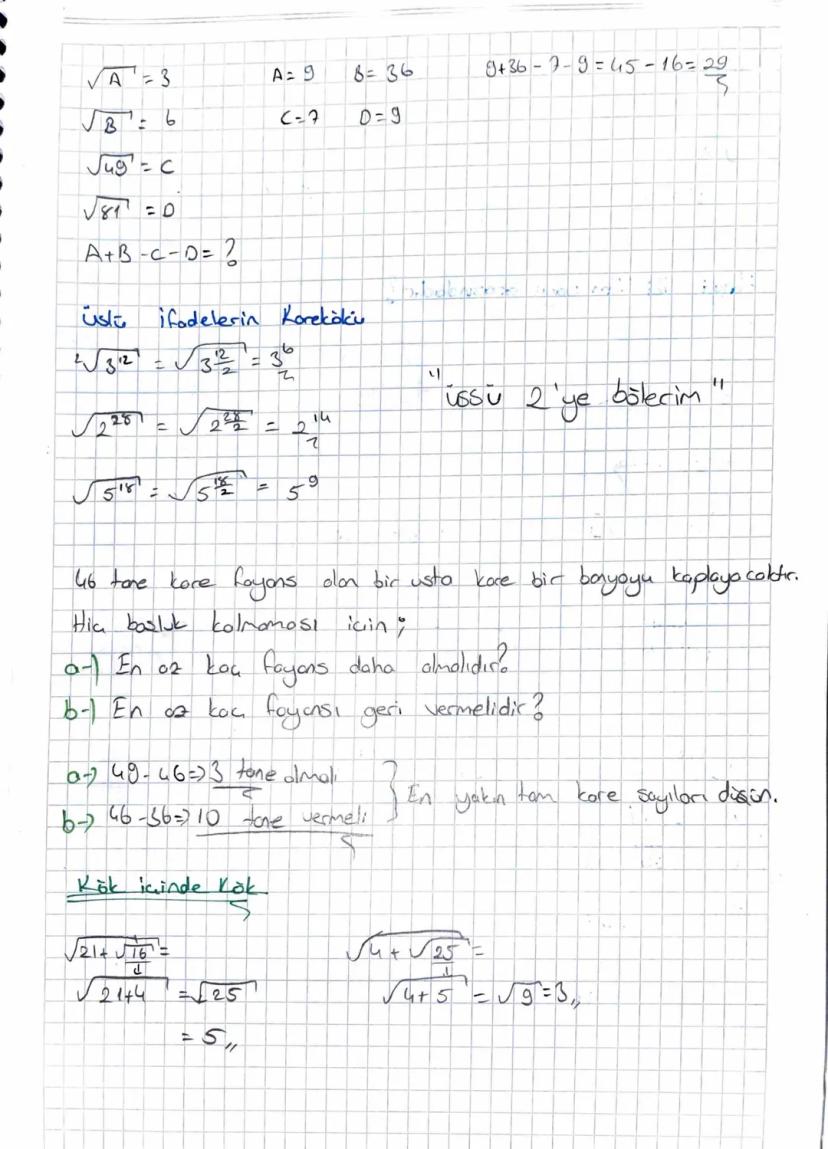 √A = 3 A = 9 B = 36 9+36-7-9 = 45-16 = 29
√B = 6 C = 7 D = 9
√49 = C
√81 = D
A+B-C-D = ?
Üslü ifadelerin Karekökü
²√3¹² = √3^(12/2) = 3⁶
"Üssü 2'ye bölerim"
√2²⁸ = √2^(28/2) = 2¹⁴
√5¹⁸ = √5^(18/2) = 5⁹
46 tane kare fayans olan bir usta kare bir banyoyu kaplayacaktır.
Hiç boşluk kalmaması için;
a-) En az kaç fayans daha almalıdır?
b-) En az kaç fayansı geri vermelidir?
a→ 49-46 => 3 tane almalı
b→ 46-36 => 10 tane vermeli
} En yakın tam kare sayıları düşün.
Kök içinde Kök
√(21+√16) = √(4+√25) =
√(21+4) = √25 √(4+5) = √9 = 3,,
= 5,,